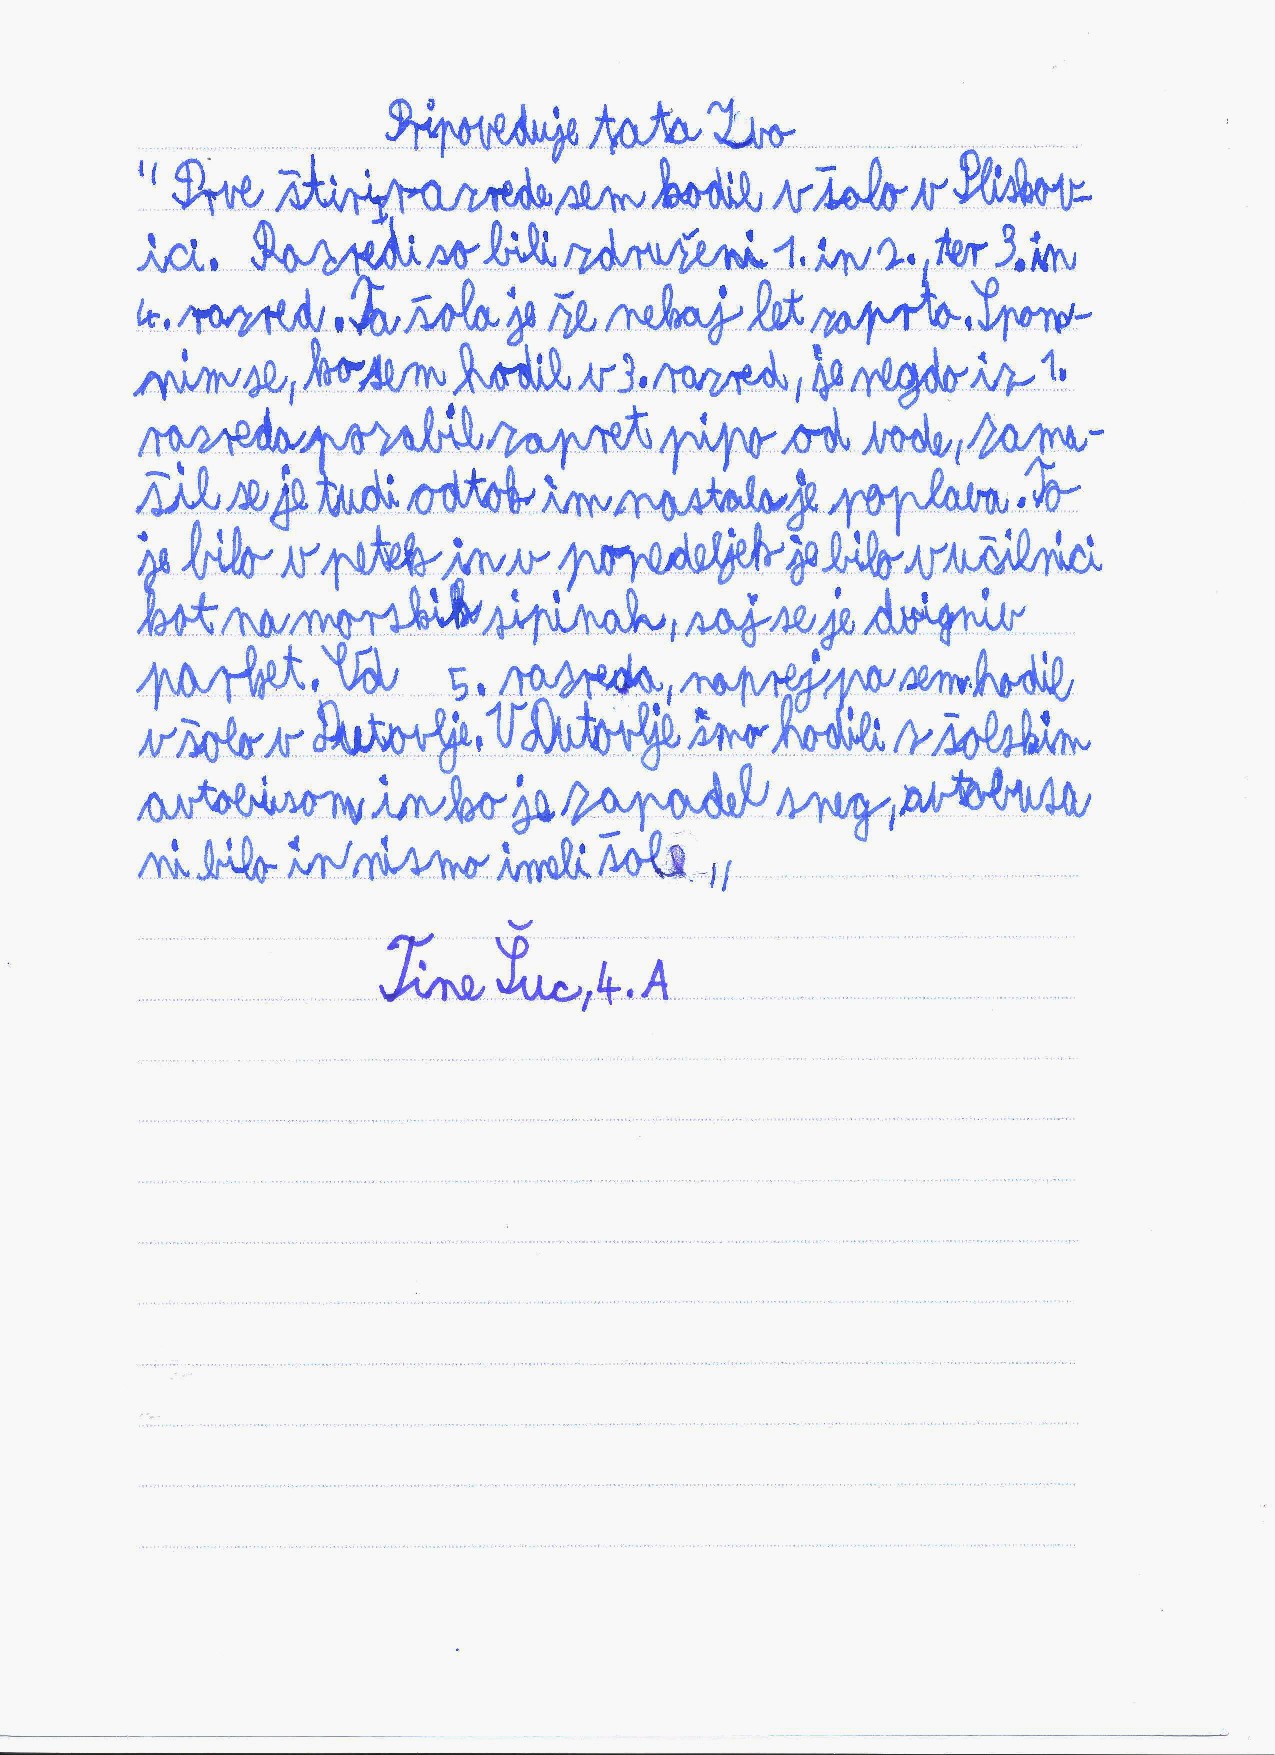 Pripoveduje tata Ivo
"Prve štiri razrede sem hodil v šolo v Pliskov-
ici. Razredi so bili združeni 1. in 2., ter 3. in
4. razred. Ta šola je že nekaj let zaprta. Spom-
nim se, ko sem hodil v 3. razred, je negdo iz 1.
razreda pozabil zapret pipo od vode, zama-
šil se je tudi odtok in nastala je poplava. To
je bilo v petek in v ponedeljek je bilo v učilnici
kot na morskih sipinah, saj se je dvigniv
parket. Od 5. razreda, naprej pa sem hodil
v šolo v Dutovlje. V Dutovlje smo hodili z šolskim
avtobusom in ko je zapadel sneg, avtobusa
ni bilo in nismo imeli šole."
Tine Šuc, 4. A